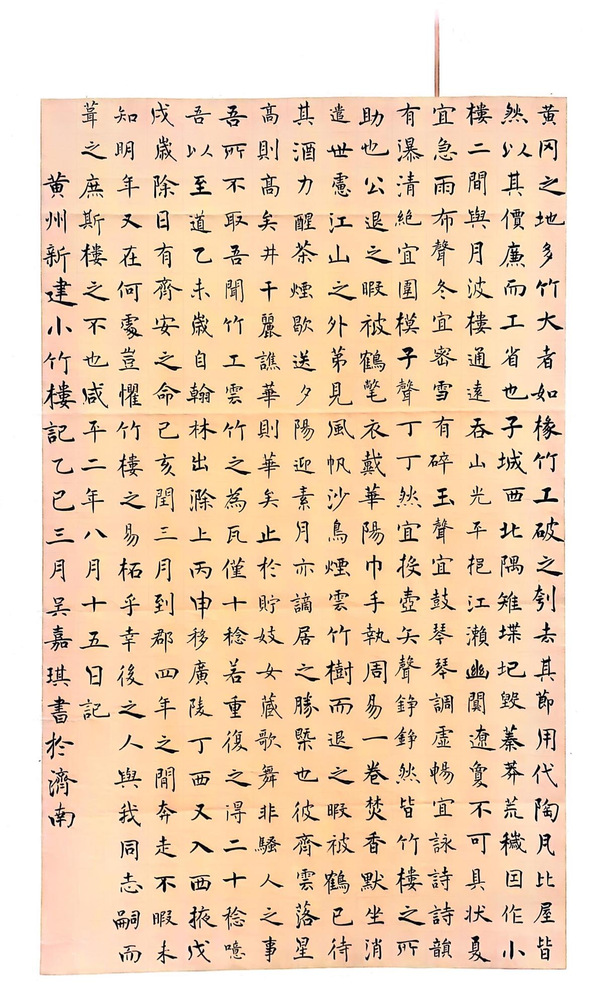 黄冈之地多竹大者如椽竹工破之刳去其節用代陶瓦比屋皆
然以其價廉而工省也子城西北隅雉堞圮毀蓁莽荒穢因作小
樓二間與月波樓通遠吞山光平挹江瀨幽闃遼敻不可具状夏
宜急雨布聲冬宜密雪有碎玉聲宜鼓琴琴調虛暢宜詠詩詩韻
有瀑清絶宜圍模子聲丁丁然宜投壺矢聲錚錚然皆竹樓之所
助也公退之暇被鶴氅衣戴華陽巾手執周易一卷焚香默坐消
遣世慮江山之外第見風帆沙鳥煙雲竹樹而退之暇被鶴已待
其酒力醒茶煙歇送夕陽迎素月亦謫居之勝槩也彼齊雲落星
高則高矣井干麗譙華則華矣止於貯妓女藏歌舞非騷人之事
吾所不取吾聞竹工雲竹之為瓦僅十稔若重復之得二十稔噫
吾以至道乙未歲自翰林出滁上丙申移廣陵丁酉又入西掖戊
戌歲除日有齊安之命己亥閏三月到郡四年之間奔走不暇未
知明年又在何處豈懼竹樓之易柘乎幸後之人與我同志嗣而
葺之庶斯樓之不也咸平二年八月十五日記
黄州新建小竹樓記乙巳三月吴嘉琪書於濟南